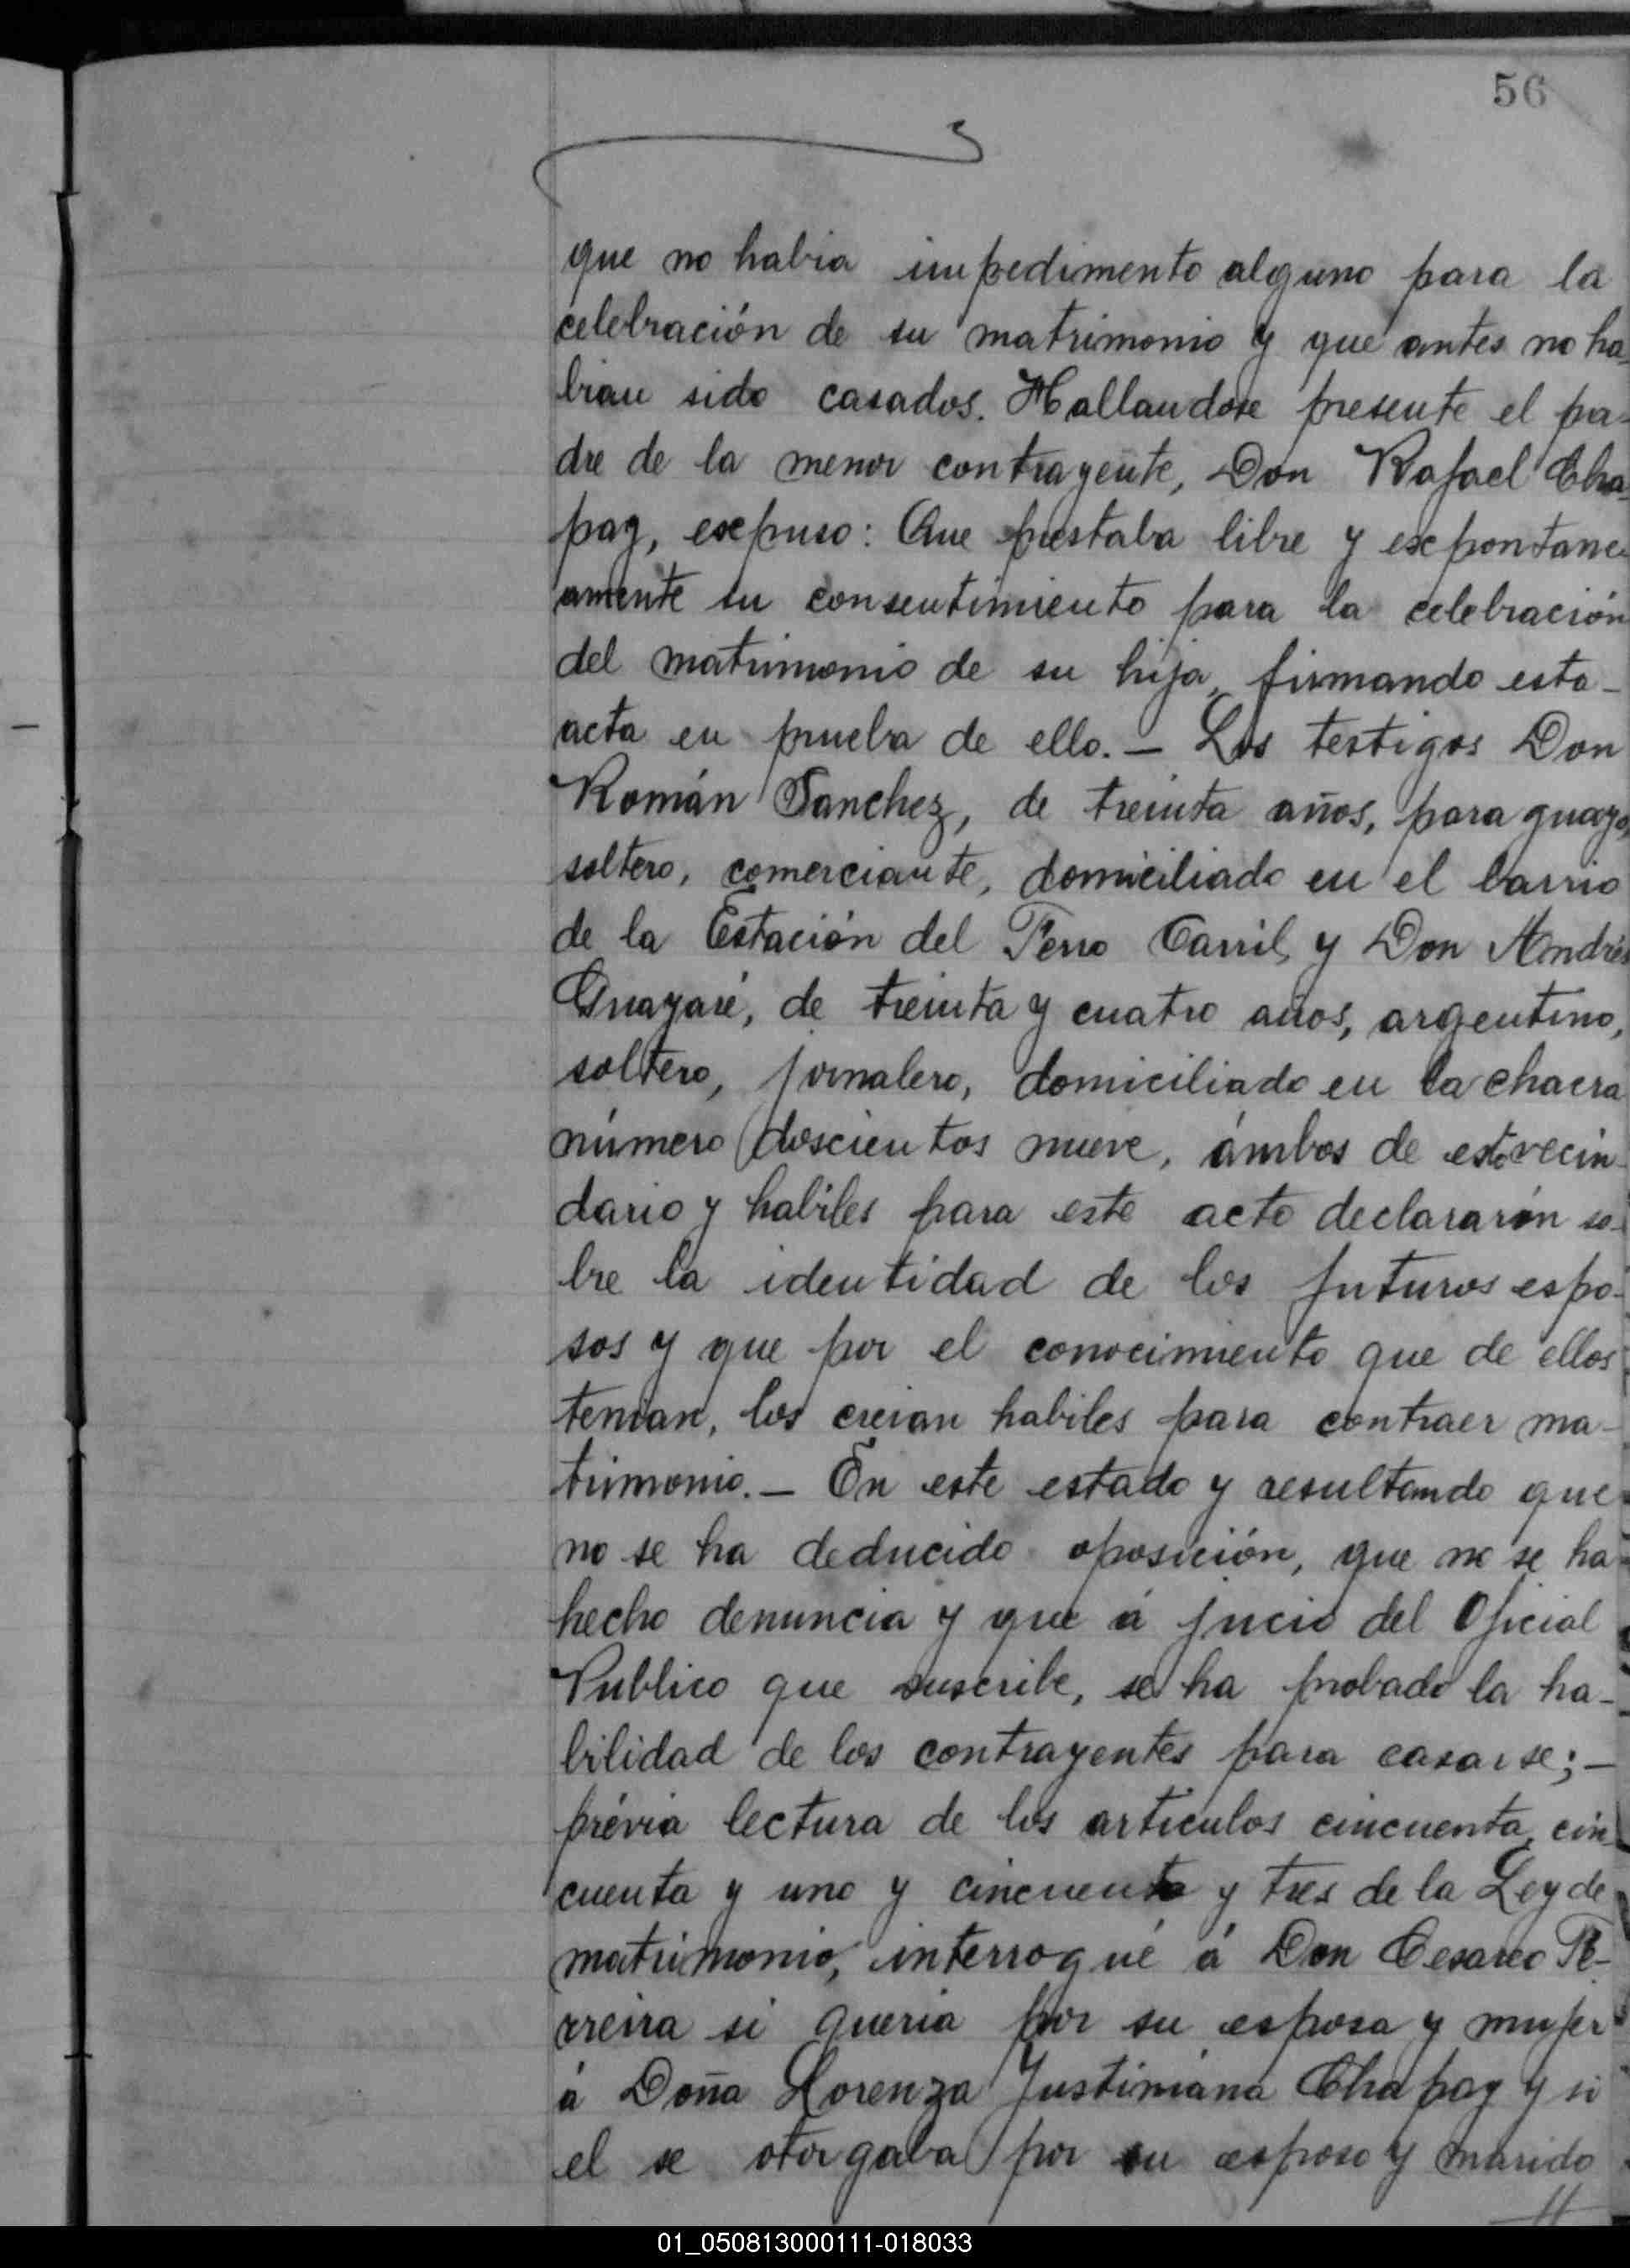 56
que no habia impedimento alguno para la
celebración de su matrimonio y que antes no ha-
bian sido casados. Hallandose presente el pa-
dre de la menor contrayente, Don Rafael Cha-
pay, expuso: Que prestaba libre y expontane-
amente su consentimiento para la celebración
del matrimonio de su hija, firmando esta-
acta en prueba de ello. — Los testigos Don
Román Sanchez, de treinta años, paraguayo,
soltero, comerciante, domiciliado en el barrio
de la Estación del Ferro Carril, y Don Andrés
Guayaré, de treinta y cuatro años, argentino,
soltero, jornalero, domiciliado en la chacra
número doscientos nueve, ámbos de este vecin-
dario y habiles para este acto declararón so-
bre la identidad de los futuros espo-
sos y que por el conocimiento que de ellos
tenian, los creian habiles para contraer ma-
trimonio. — En este estado y resultando que
no se ha deducido oposición, que no se ha
hecho denuncia y que á jucio del Oficial
Publico que suscribe, se ha probado la ha-
bilidad de los contrayentes para casarse; —
prévia lectura de los articulos cincuenta, cin-
cuenta y uno y cincuenta y tres de la Ley de
matrimonio, interrogué á Don Cesareo Fe-
rreira si queria por su esposa y mujer
á Doña Lorenza Justiniána Chapay y si
el se otorgaba por su esposo y marido
01_050813000111-018033